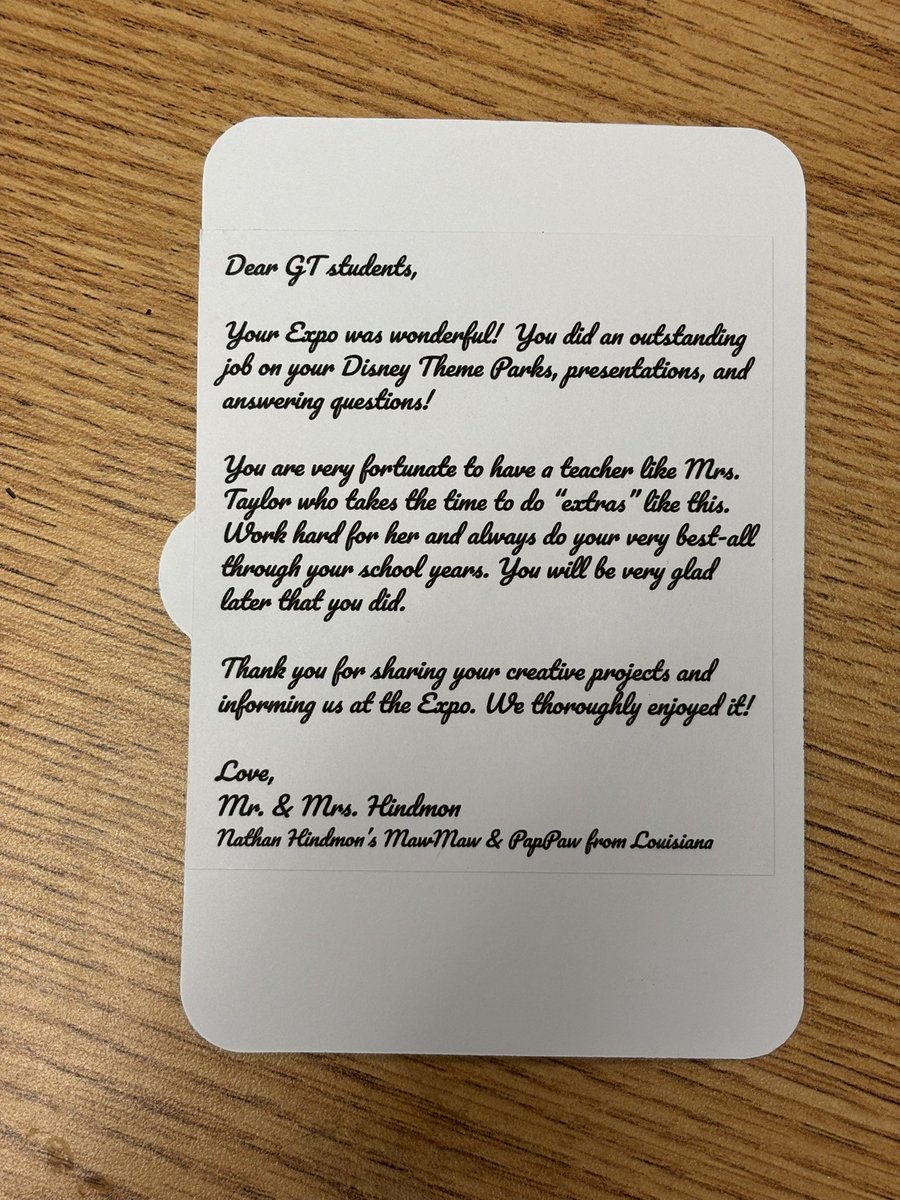 Dear GT students,
Your Expo was wonderful! You did an outstanding
job on your Disney Theme Parks, presentations, and
answering questions!
You are very fortunate to have a teacher like Mrs.
Taylor who takes the time to do “extras” like this.
Work hard for her and always do your very best-all
through your school years. You will be very glad
later that you did.
Thank you for sharing your creative projects and
informing us at the Expo. We thoroughly enjoyed it!
Love,
Mr. & Mrs. Hindmon
Nathan Hindmon's MawMaw & PapPaw from Louisiana